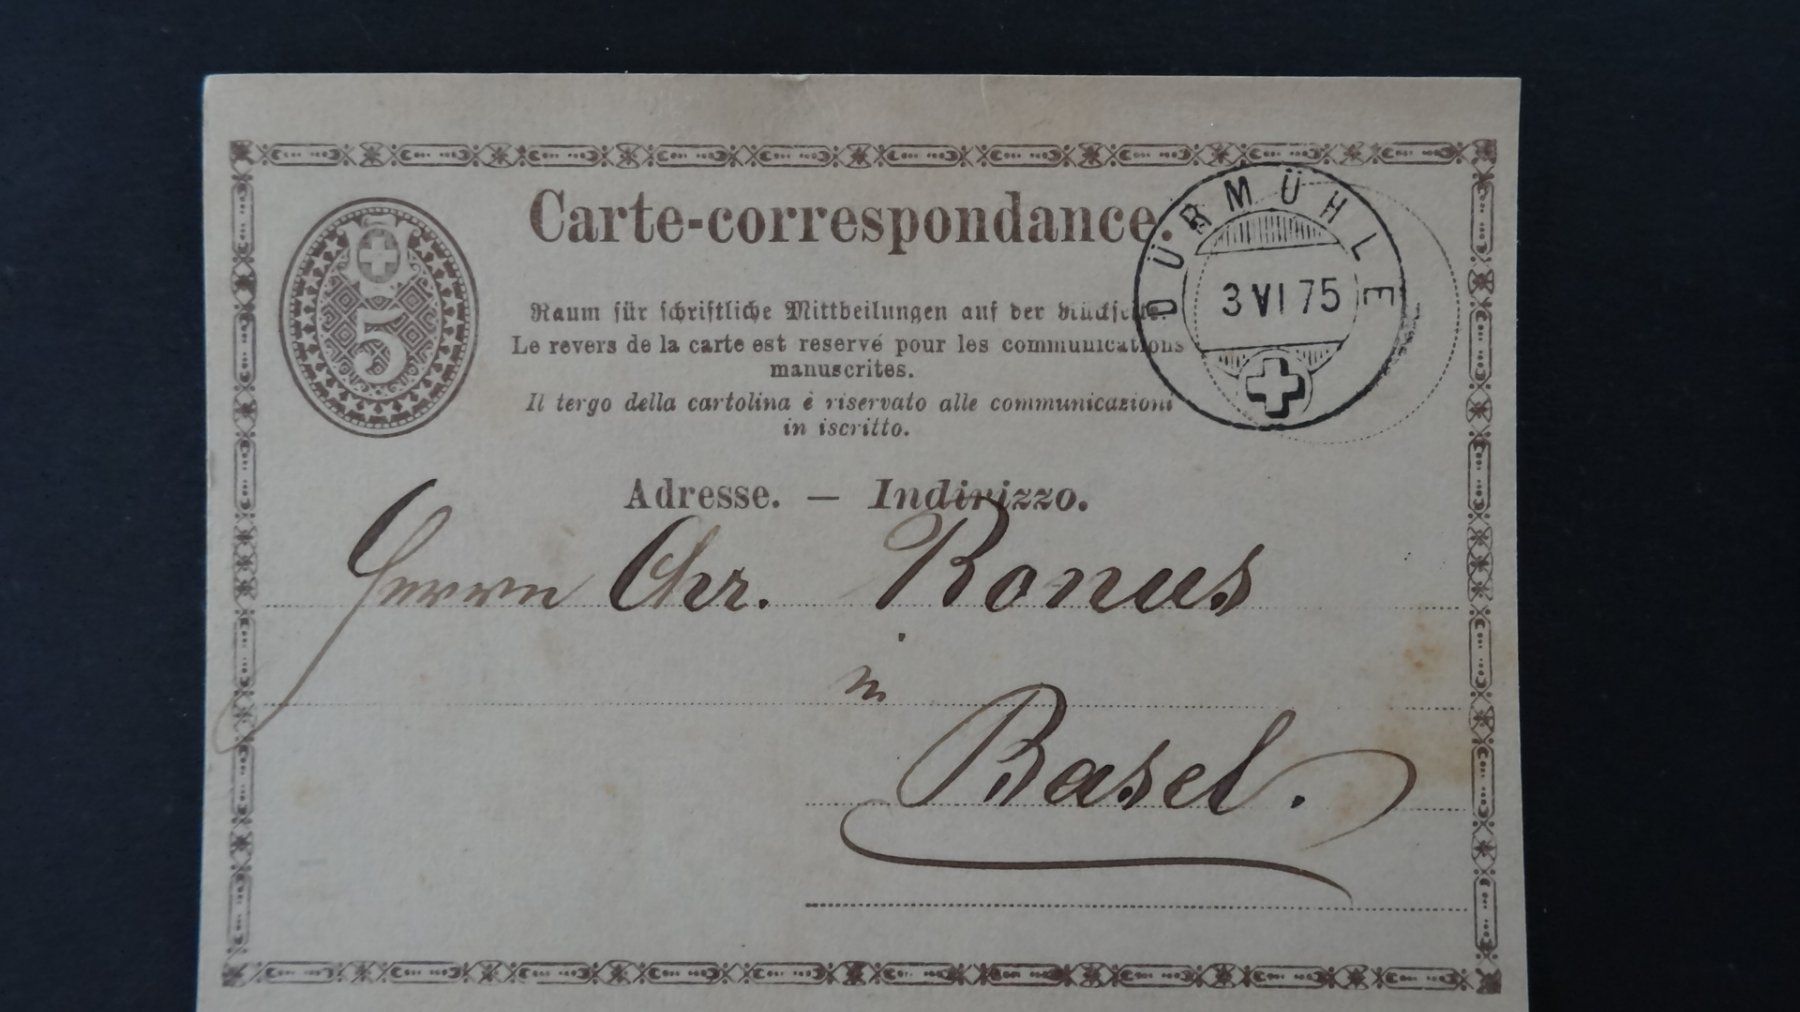 Carte-correspondance.
5
DÜRMÜHLE
3 VI 75
Raum für schriftliche Mittheilungen auf der Rückseite.
Le revers de la carte est reservé pour les communications
manuscrites.
Il tergo della cartolina è riservato alle communicazioni
in iscritto.
Adresse. — Indirizzo.
Herrn Chr. Ronus
in
Basel.